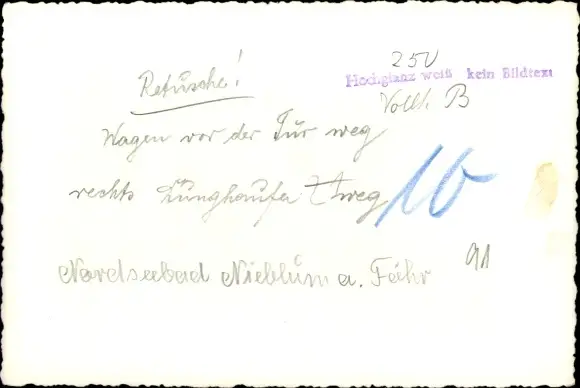 250
Retusche!
Hochglanz weiß kein Bildtext
Vollt. B
Wagen vor der Tür weg
rechts Dunghaufen weg
10
91
Nordseebad Nieblum a. Föhr